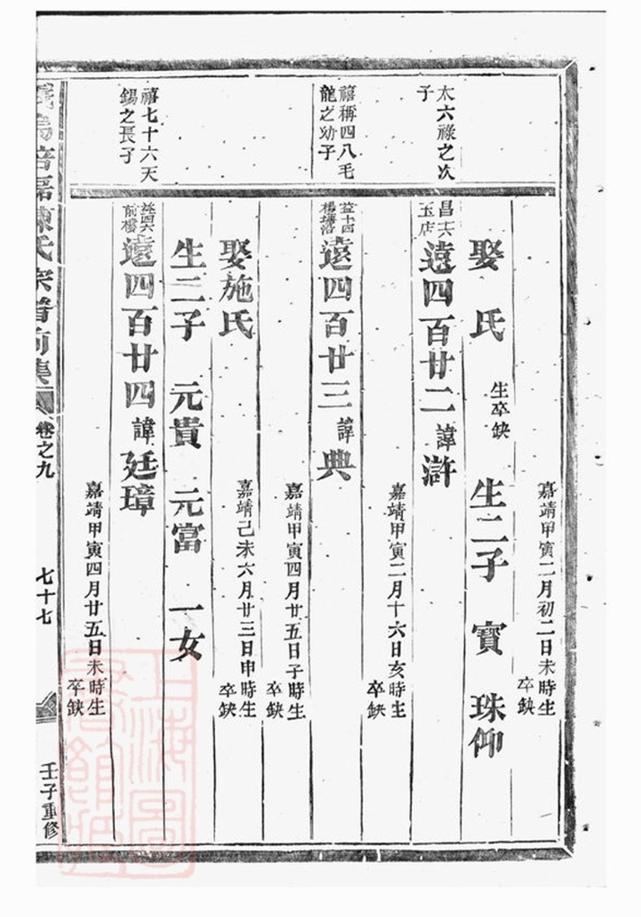 嘉靖甲寅二月初二日未時生
卒缺
娶 氏 生卒缺 生二子 寶 珠仰
太六祿之次
子
昌六
玉店
遠四百廿二 諱滸
嘉靖甲寅二月十六日亥時生
卒缺
禧稱四八毛
龍之幼子
益十四
遠四百廿三 諱典
嘉靖甲寅四月廿五日子時生
卒缺
娶施氏
嘉靖己未六月廿三日申時生
卒缺
生二子 元貴 元富 一女
禧七十六天
錫之長子
益四六
前樓
遠四百廿四 諱廷璋
嘉靖甲寅四月廿五日未時生
卒缺
陳氏宗譜前集
卷之九
七十七
壬子重修